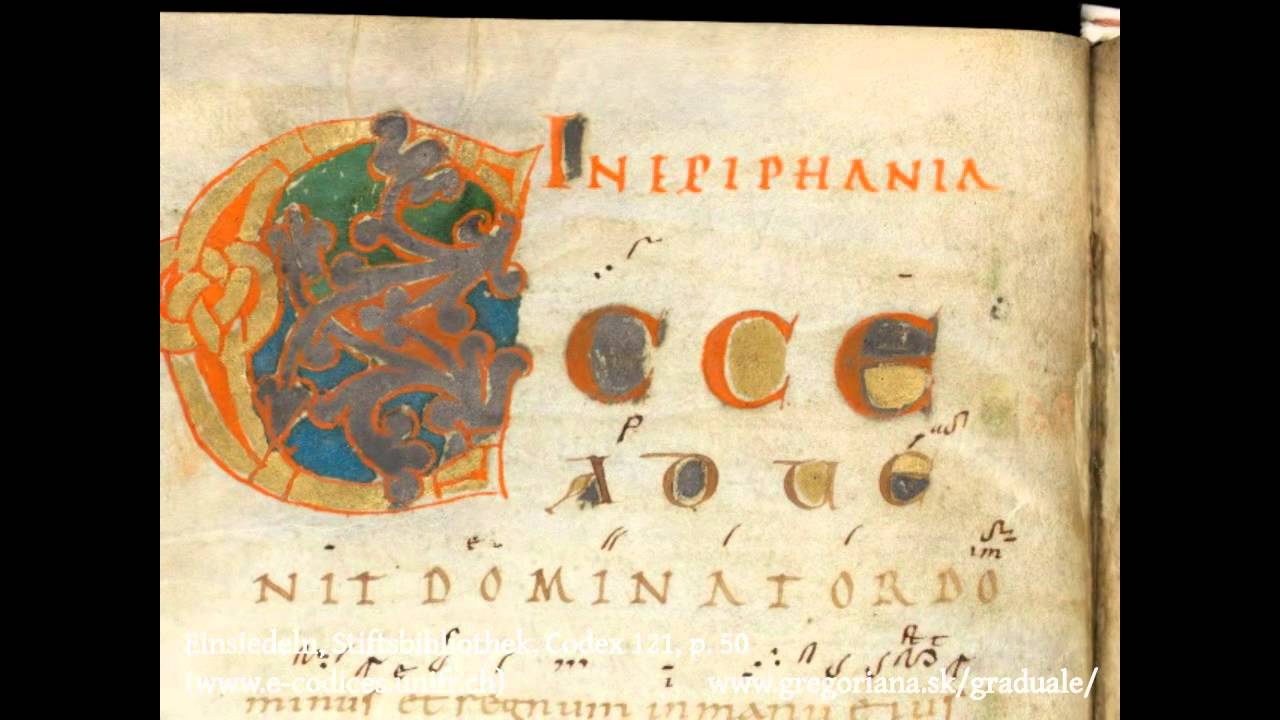 IN EPIPHANIA
ECCE
ADUE
NIT DOMINATOR DO
im
minus et regnum in manu eius
Einsiedeln, Stiftsbibliothek, Codex 121, p. 50
(www.e-codices.unifr.ch)
www.gregoriana.sk/graduale/